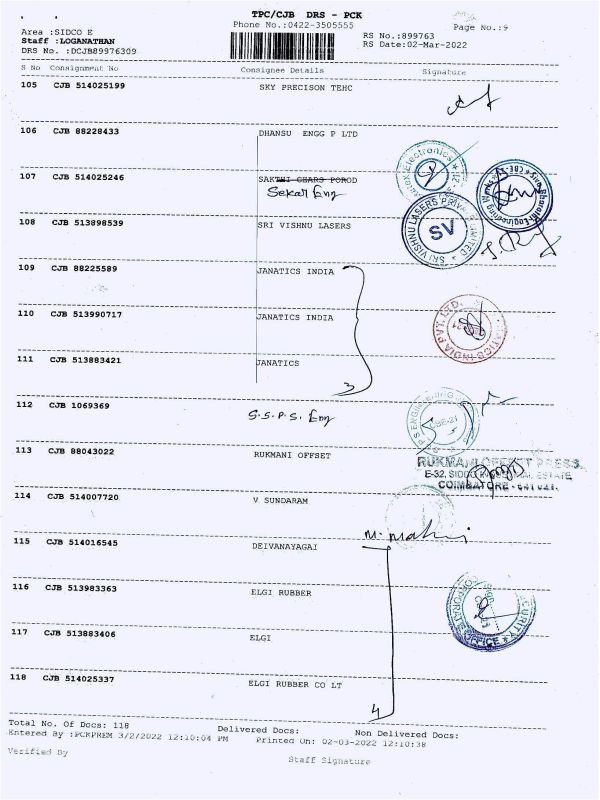 TPC/CJB DRS - PCK
Phone No.:0422-3505555
Page No.:9
Area :SIDCO E
Staff :LOGANATHAN
DRS No. :DCJB89976309
RS No.:899763
RS Date:02-Mar-2022
S No Consignment No Consignee Details Signature
105 CJB 514025199 SKY PRECISON TEHC
106 CJB 88228433 DHANSU ENGG P LTD
107 CJB 514025246 SAKTHI GHARS POROD
Sekar Eng
108 CJB 513898539 SRI VISHNU LASERS
SV
109 CJB 88225589 JANATICS INDIA
110 CJB 513990717 JANATICS INDIA
111 CJB 513883421 JANATICS
3
112 CJB 1069369 S.S.P.S. Eng
113 CJB 88043022 RUKMANI OFFSET
RUKMANI OFFSET PRESS
COIMBATORE - 641 021.
114 CJB 514007720 V SUNDARAM
115 CJB 514016545 DEIVANAYAGAI
116 CJB 513983363 ELGI RUBBER
117 CJB 513883406 ELGI
118 CJB 514025337 ELGI RUBBER CO LT
4
Total No. Of Docs: 118 Delivered Docs: Non Delivered Docs:
Entered By :PCKPREM 3/2/2022 12:10:04 PM Printed On: 02-03-2022 12:10:38
Verified By Staff Signature